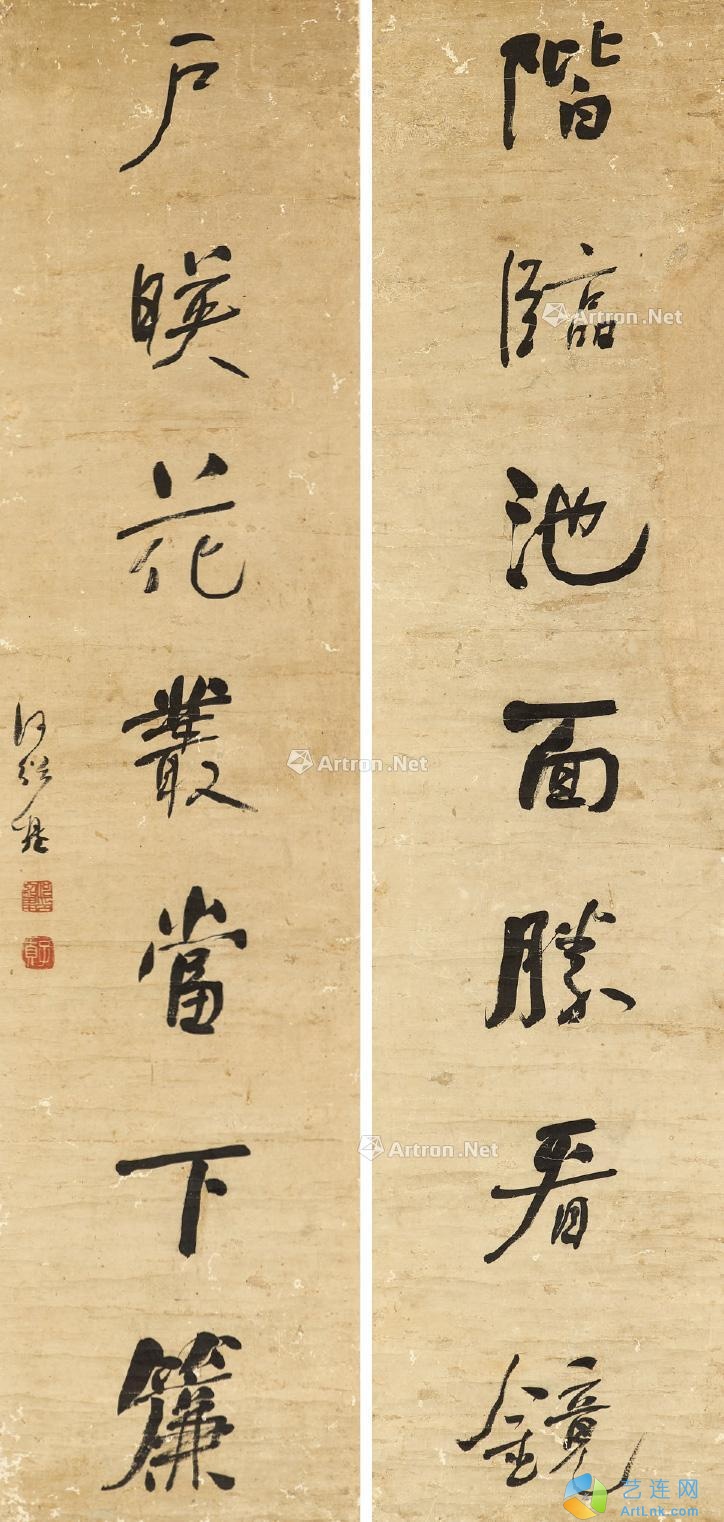 階臨池面勝看鏡
戶暎花叢當下簾
何紹基
子貞
Artron.Net
Artron.Net
Artron.Net
艺连网
ArtLnk.com